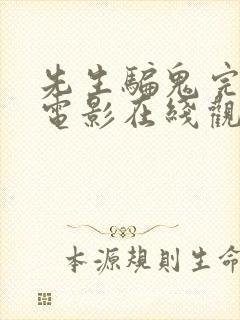 先生騙鬼完
電影在綫觀
本源規則生命